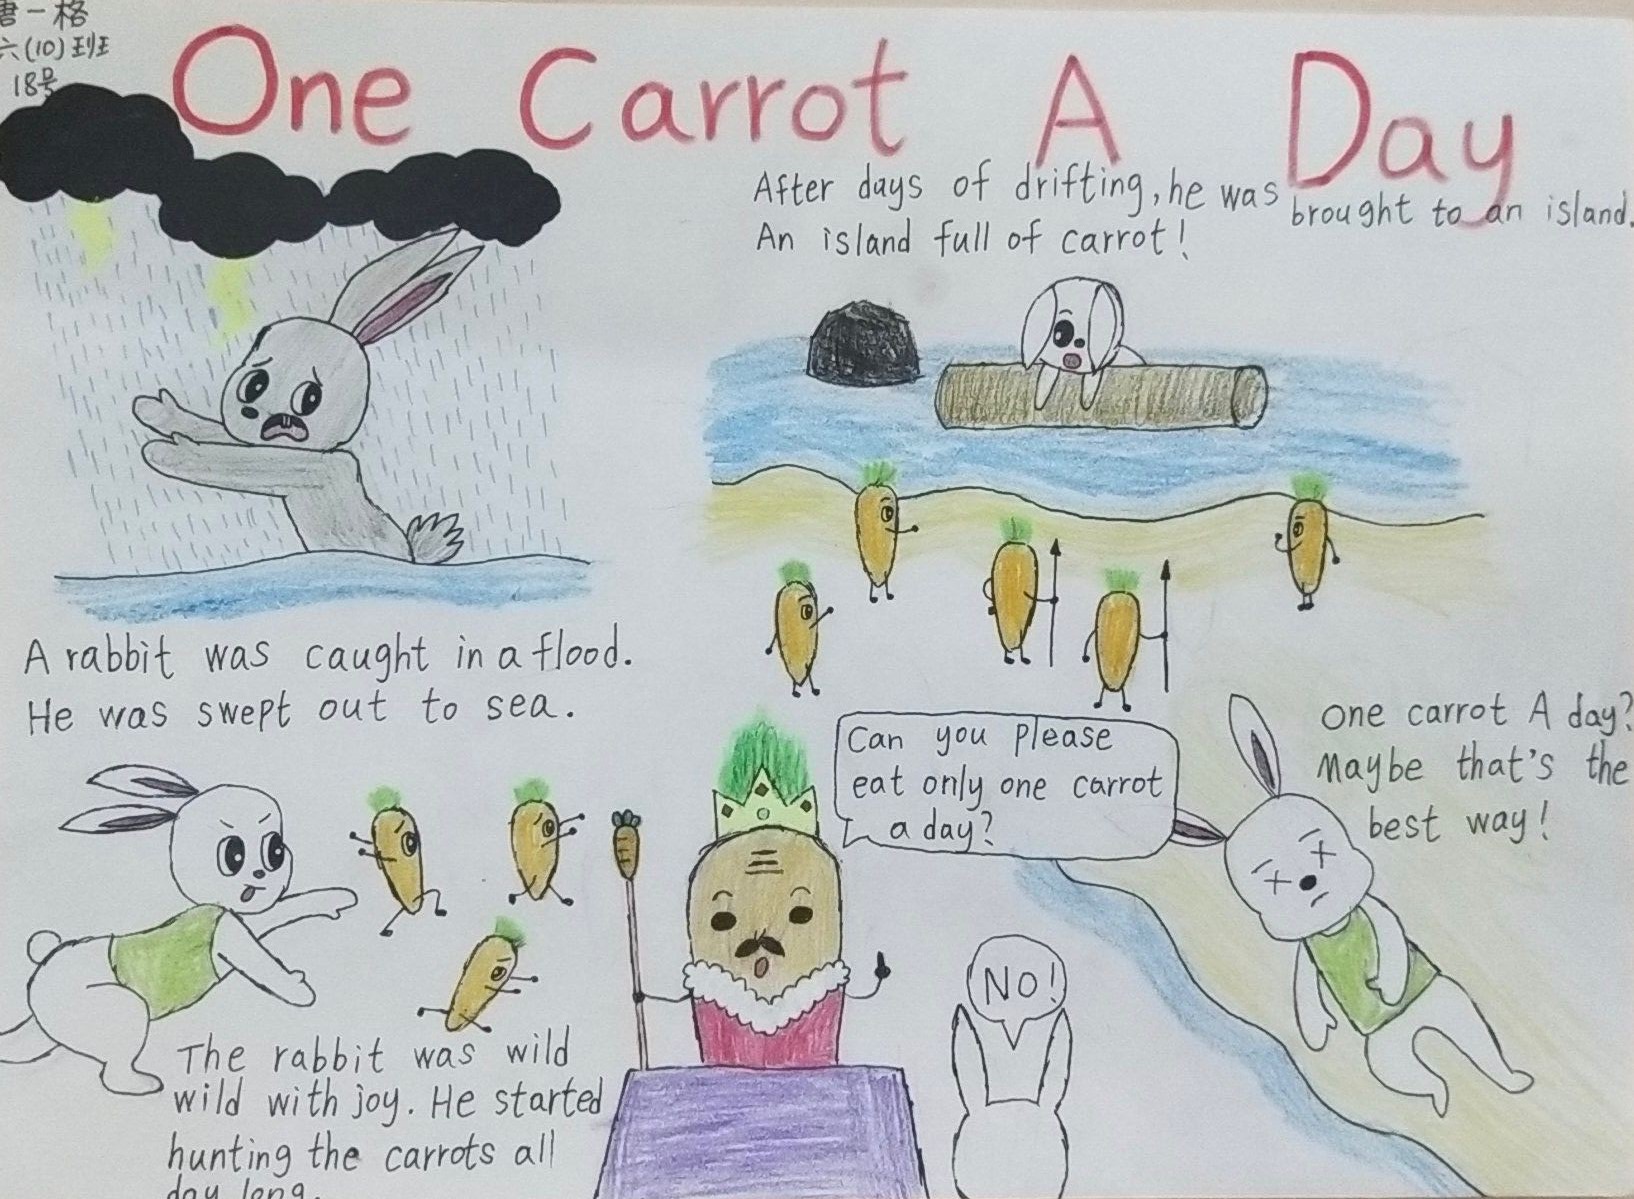 唐一格
六(10)班
18号
One Carrot A Day
After days of drifting, he was brought to an island.
An island full of carrot!
A rabbit was caught in a flood.
He was swept out to sea.
Can you please
eat only one carrot
a day?
One carrot A day?
Maybe that's the
best way!
NO!
The rabbit was wild
wild with joy. He started
hunting the carrots all
day long.